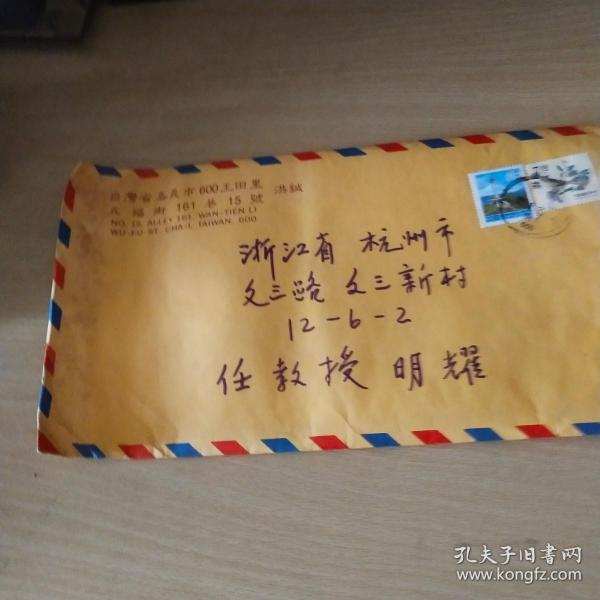 台灣省嘉義市600王田里
五福街 161 巷 15 號 洪鋮
NO. 15, ALLEY 161, WAN-TIEN LI
WU-FU ST. CHA-I, TAIWAN, 600
浙江省 杭州市
文三路 文三新村
12-6-2
任教授 明耀
孔夫子旧书网
www.kongfz.com